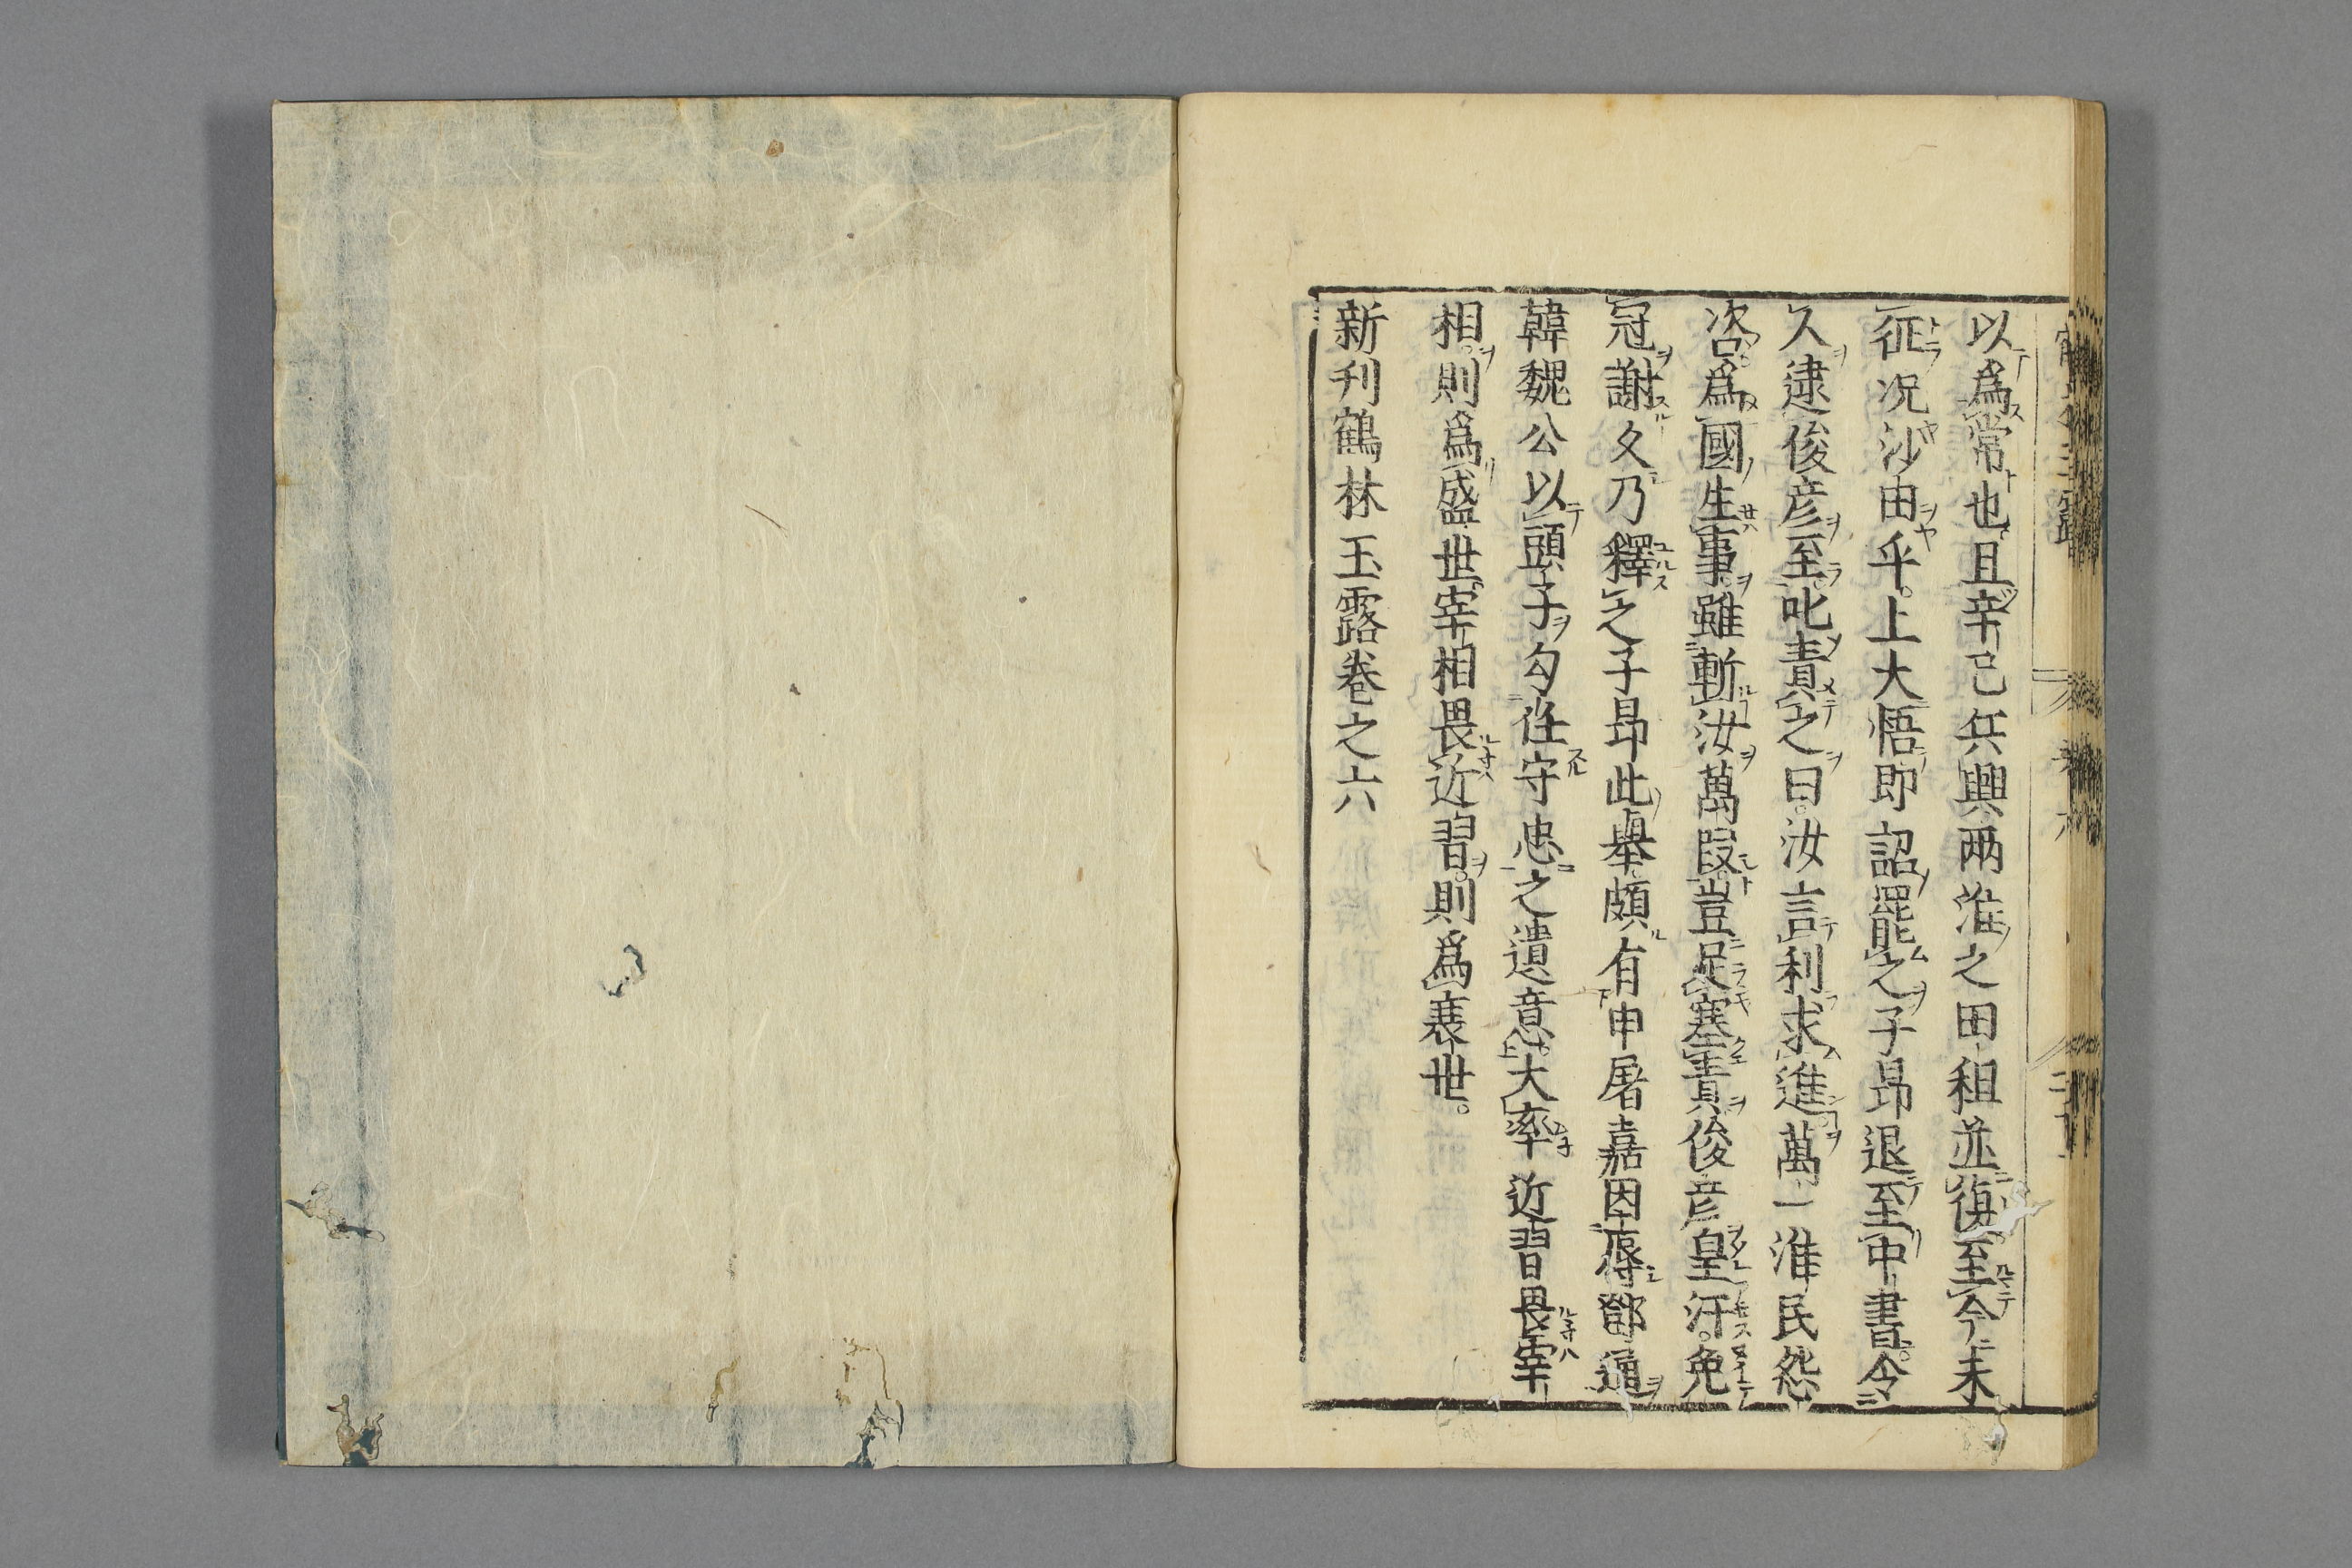 以爲常也且辛已兵興兩淮之田租並復至今未
征况沙由乎。上大悟即詔罷之子昻退至中書。令
人逮俊彦至。叱責之曰。汝言利求進。萬一淮民怨
咨。爲國生事。雖斬汝萬叚。豈足塞責。俊彦皇汗。免
冠謝久乃釋之子昻此舉。頗有申屠嘉因辱鄧通
韓魏公以頭子勾任守忠之遺意。大率近習畏宰
相。則爲盛世。宰相畏近習。則爲衰世。
新刋鶴林玉露卷之六